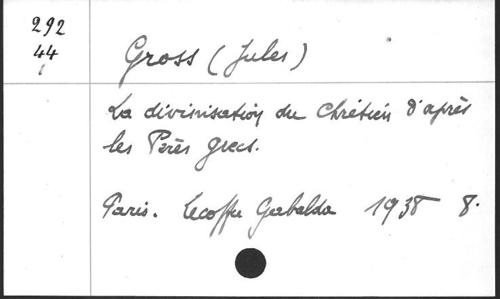 292
44
Gross (Jules)
La divinisation du Chrétien d'après
les Pères grecs.
Paris. Lecoffre Gabalda 1938 8.